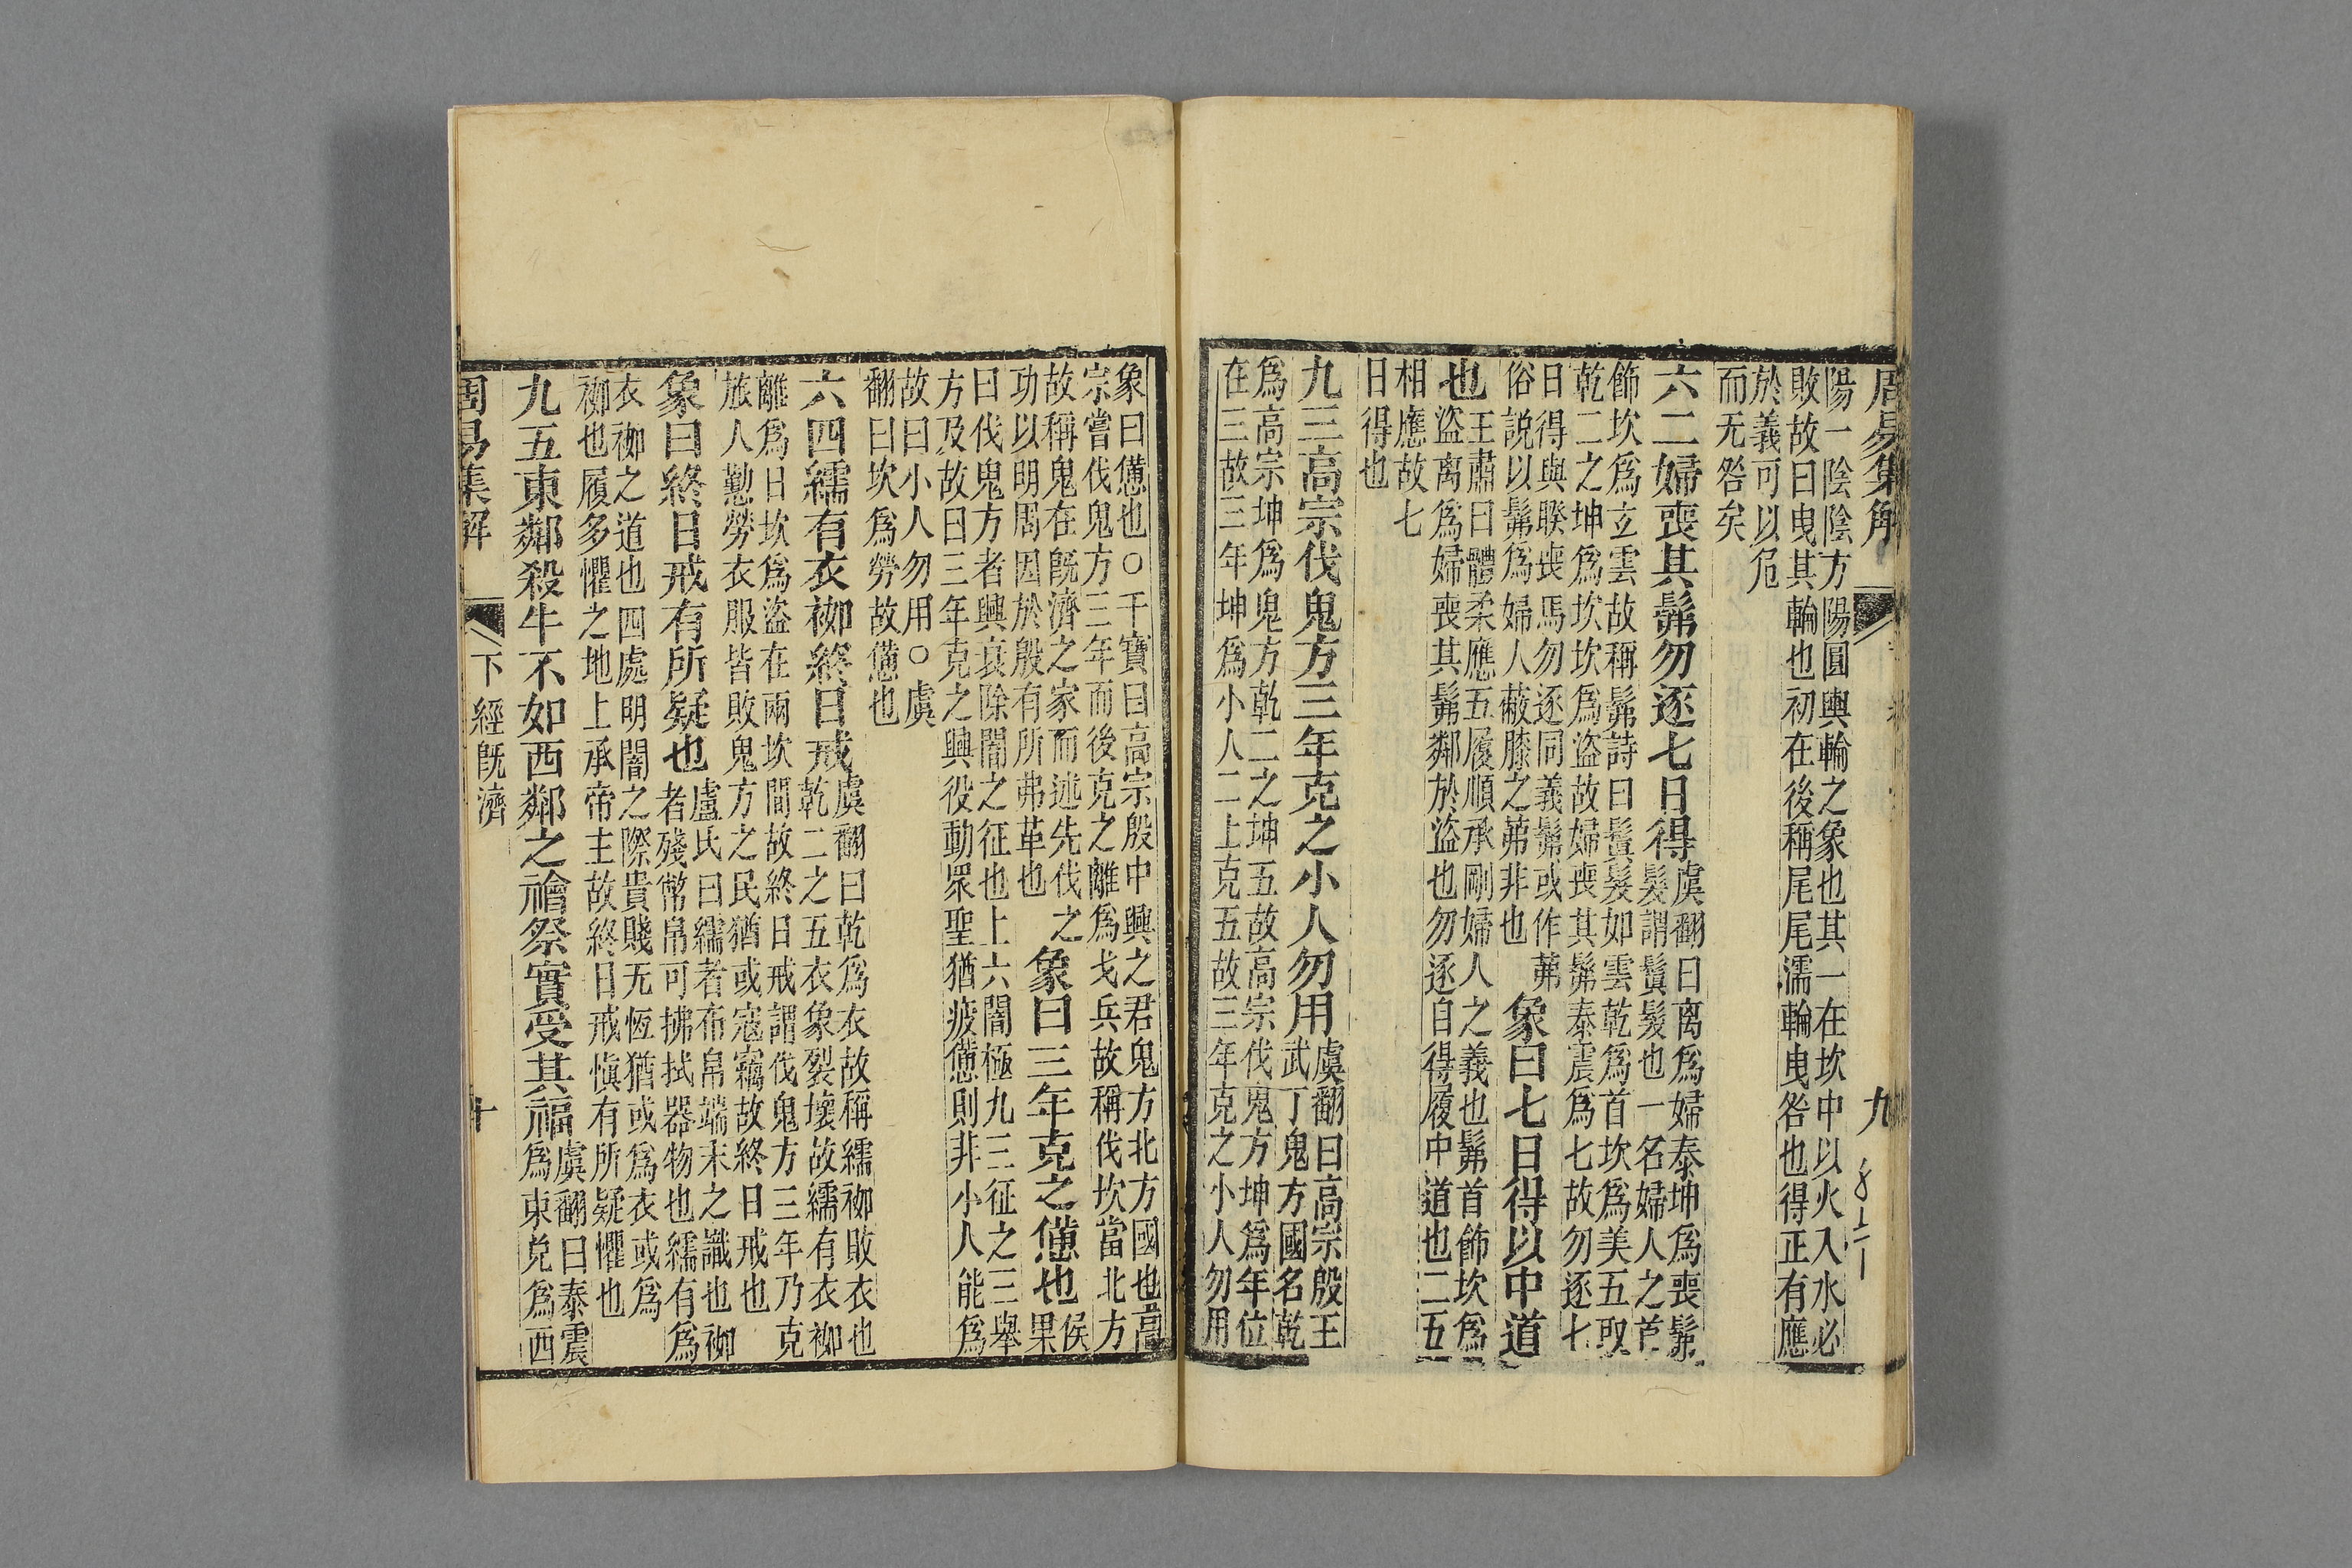 周易集解
九
陽一陰陰方陽圓輿輪之象也其一在坎中以火入水必
敗故曰曳其輪也初在後稱尾尾濡輪曳咎也得正有應
於義可以危
而无咎矣
六二婦喪其髴勿逐七日得
虞翻曰离爲婦泰坤爲喪髴
髮謂鬒髮也一名婦人之首
飾坎爲玄雲故稱髴詩曰鬒髮如雲乾爲首坎爲美五取
乾二之坤爲坎坎爲盜故婦喪其髴泰震爲七故勿逐七
日得與睽喪馬勿逐同義髴或作茀
俗說以髴爲婦人蔽膝之茀非也
象曰七日得以中道
也
王肅曰體柔應五履順承剛婦人之義也髴首飾坎爲
盜离爲婦喪其髴鄰於盜也勿逐自得履中道也二五
相應故七
日得也
九三高宗伐鬼方三年克之小人勿用
虞翻曰高宗殷王
武丁鬼方國名乾
爲高宗坤爲鬼方乾二之坤五故高宗伐鬼方坤爲年位
在三故三年坤爲小人二上克五故三年克之小人勿用
象曰憊也○干寶曰高宗殷中興之君鬼方北方國也高
宗嘗伐鬼方三年而後克之離爲戈兵故稱伐坎當北方
故稱鬼在旣濟之家而述先伐之
功以明周因於殷有所弗革也
象曰三年克之憊也
侯
果
曰伐鬼方者興衰除闇之征也上六闇極九三征之三舉
方及故曰三年克之興役動眾聖猶疲憊則非小人能爲
故曰小人勿用○虞
翻曰坎爲勞故憊也
六四繻有衣袽終日戒
虞翻曰乾爲衣故稱繻袽敗衣也
乾二之五衣象裂壞故繻有衣袽
離爲日坎爲盜在兩坎間故終日戒謂伐鬼方三年乃克
旅人懃勞衣服皆敗鬼方之民猶或寇竊故終日戒也
象曰終日戒有所疑也
盧氏曰繻者布帛端末之識也袽
者殘幣帛可拂拭器物也繻有爲
衣袽之道也四處明闇之際貴賤无恆猶或爲衣或爲
袽也履多懼之地上承帝主故終日戒愼有所疑懼也
九五東鄰殺牛不如西鄰之禴祭實受其福
虞翻曰泰震
爲東兌爲西
周易集解
下經旣濟
十